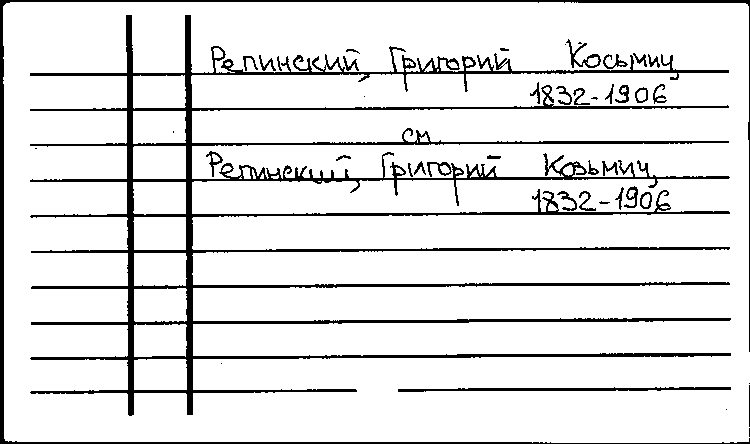 Репинский, Григорий Косьмич,
1832-1906
см
Репинский, Григорий Козьмич,
1832-1906